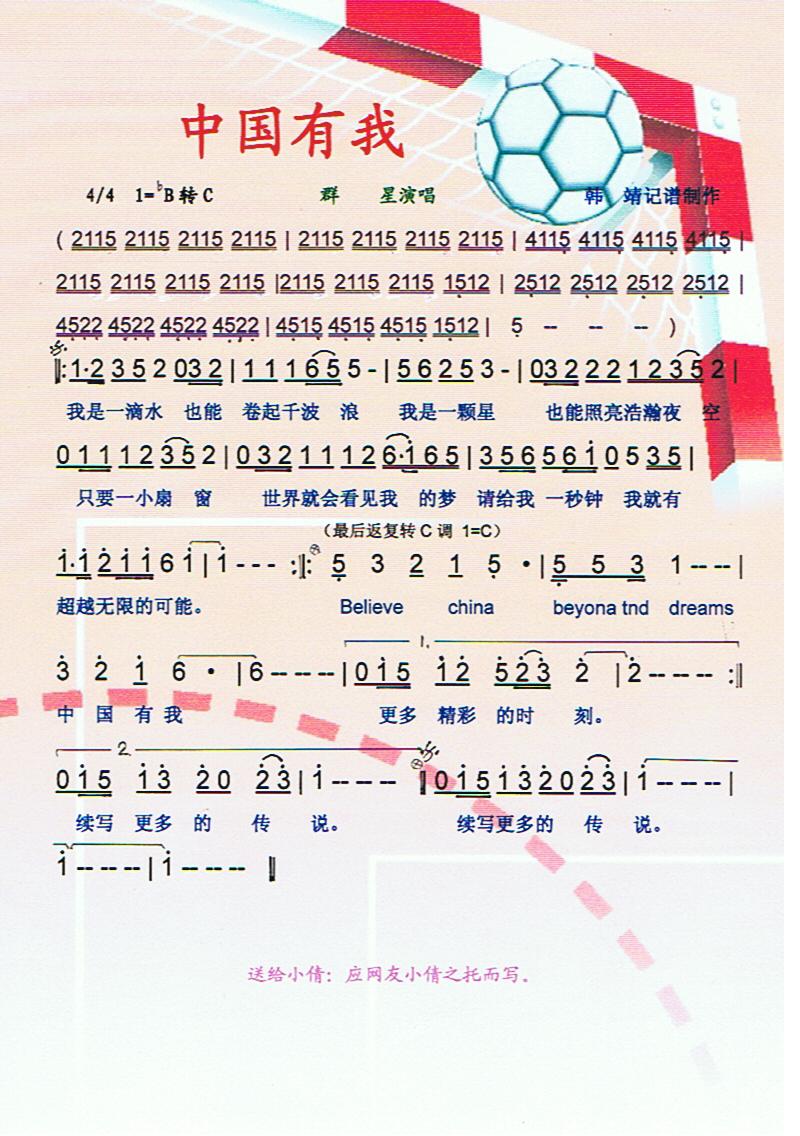 中国有我
4/4 1=♭B 转 C 群 星演唱 韩 靖记谱制作
( 2115 2115 2115 2115 | 2115 2115 2115 2115 | 4115 4115 4115 4115 |
2115 2115 2115 2115 |2115 2115 2115 1512 | 2512 2512 2512 2512 |
4522 4522 4522 4522 | 4515 4515 4515 1512 | 5 -- -- -- )
‖: 1·2 3 5 2 032 | 1 1 1 6 5 5 - | 5 6 2 5 3 - | 03 2 2 2 1 2 3 5 2 |
我是一滴水 也能 卷起千波 浪 我是一颗星 也能照亮浩瀚夜 空
0 1 1 1 2 3 5 2 | 0 3 2 1 1 1 2 6·1 6 5 | 3 5 6 5 6 1 0 5 3 5 |
只要一小扇 窗 世界就会看见我 的梦 请给我 一秒钟 我就有
(最后返复转 C 调 1=C)
1·1 2 1 1 6 1 | 1 - - - :‖: 5 3 2 1 5 · | 5 5 3 1 -- -- |
超越无限的可能。 Believe china beyona tnd dreams
1.
3 2 1 6 · | 6 -- -- | 0 1 5 1 2 5 2 3 2 | 2 -- -- :‖
中 国 有 我 更多 精彩 的时 刻。
2
0 1 5 1 3 2 0 2 3 | 1 -- -- ‖ 0 1 5 1 3 2 0 2 3 | 1 -- -- |
续写 更多 的 传 说。 续写更多的 传 说。
1 -- -- | 1 -- -- ‖
送给小倩：应网友小倩之托而写。